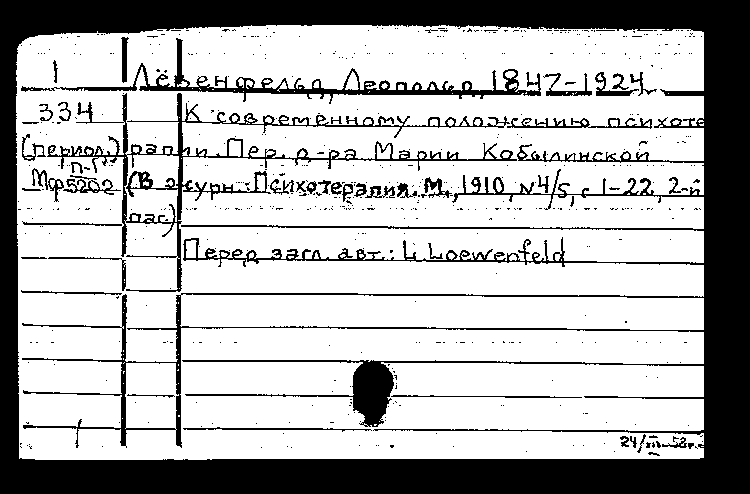 1 Лёвенфельд, Леопольд, 1847-1924
334 К современному положению психоте
(период.) рапии. Пер. д-ра Марии Кобылинской
П-1
Мф5202 (В журн.: Психотерапия. М., 1910, N4/5, с 1-22, 2-й
пас)
Перед загл. авт.: L Loewenfeld
24/III-52г.